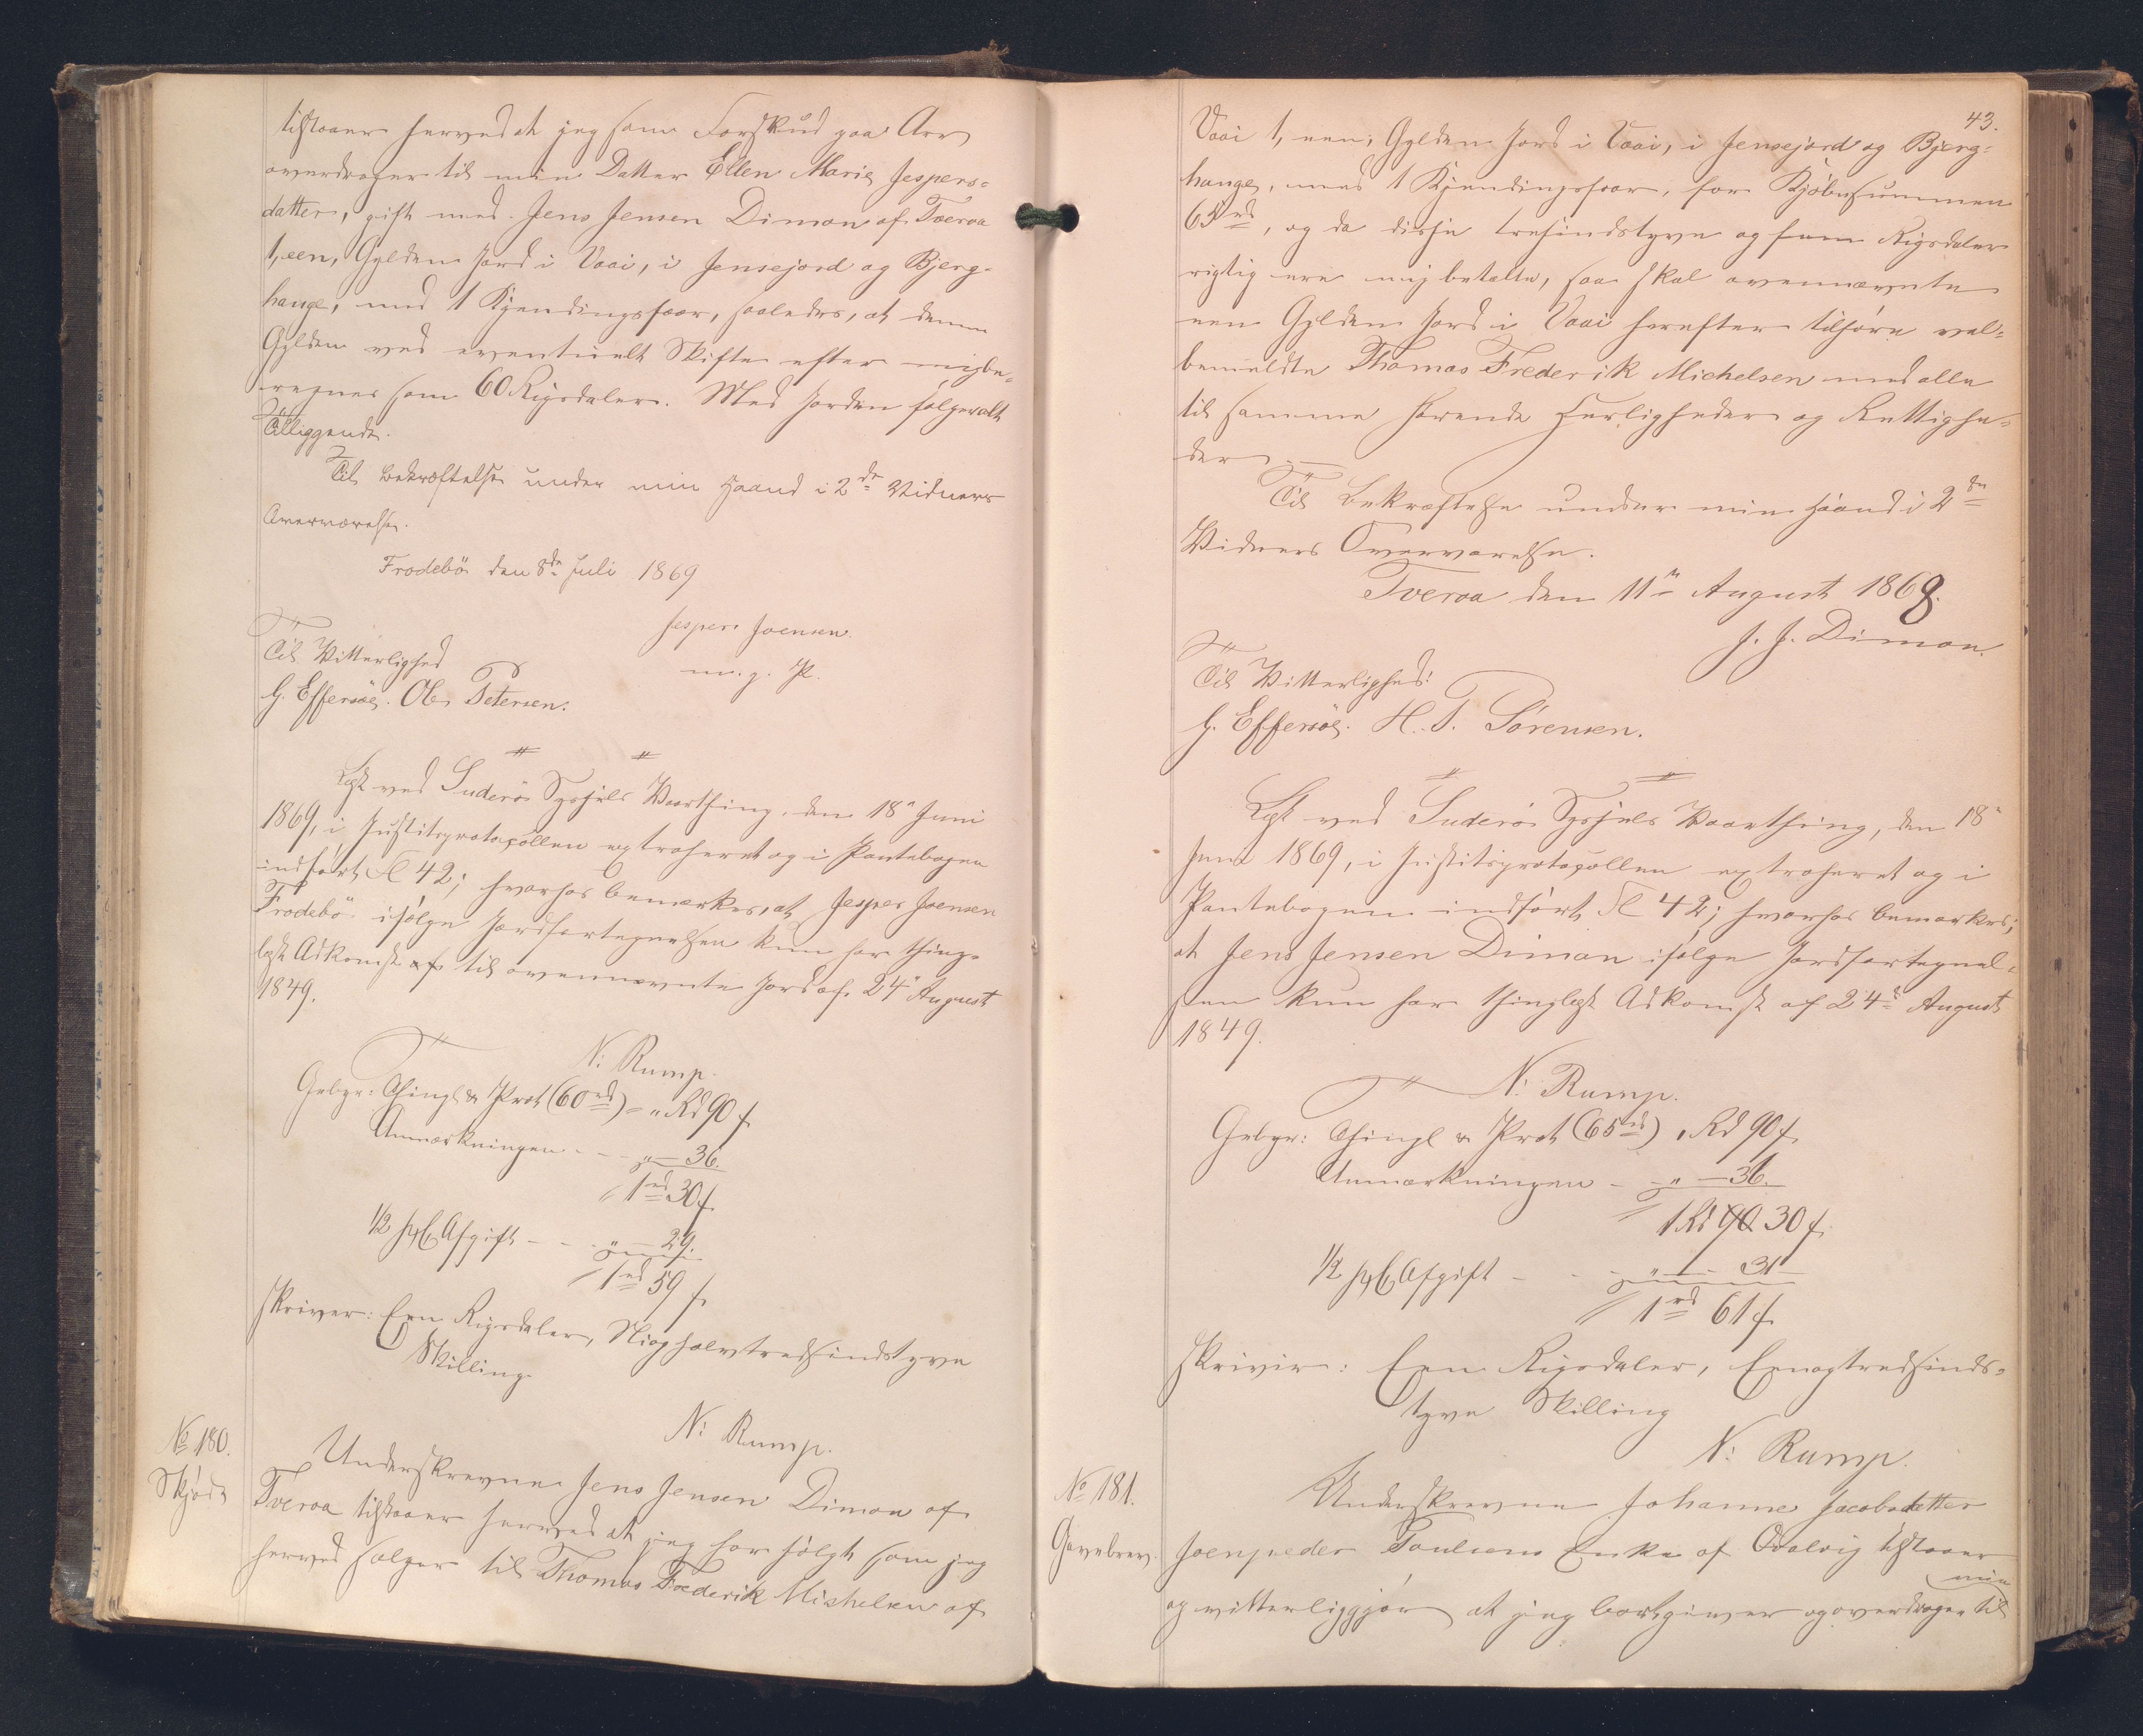 tilstaaer herved at jeg som Forskud paa Arv
overdrager til min Datter Ellen Marie Jespers-
datter, gift med Jens Jensen Dimon af Tveraa
1, een, Gylden Jord i Vaai, i Jensejord og Bjerg-
hauge, med 1 Kjendingsfaar, saaledes, at denne
Gylden ved eventuelt Skifte efter mig be-
regnes som 60 Rigsdaler. Med Jorden følger alt
Tilliggende.
Til Bekræftelse under min Haand i 2de Vidners
Overværelse.
Frodebö den 8de Juli 1869
Jesper Joensen.
m. g. P.
Til Vitterlighed
G. Effersøe. Ole Petersen.
Læst ved Suderö Syssels Vaarthing, den 18n Juni
1869, i Justitsprotocollen extraheret og i Pantebogen
indført Fol 42; hvorhos bemærkes, at Jesper Joensen
Frodebö ifølge Jordfortegnelsen kun har thing-
læst Adkomst af til ovennævnte Jord af 24n August
1849.
N: Rump.
Gebyr: Thingl & Prot (60 rd) = " Rd 90 f
Anmærkningen - - " — 36.
1 rd 30 f.
1/2 pC Afgift - - " — 29.
1 rd 59 f
skriver: Een Rigsdaler, Nioghalvtredsindstyve
Skilling
N: Rump.
No 180.
Skjøde
Underskrevne Jens Jensen Dimon af
Tveraa tilstaaer herved at jeg har solgt som jeg
herved sælger til Thomas Frederik Michelsen af
43.
Vaai 1, een, Gylden Jord i Vaai, i Jensejord og Bjerg-
hauge, med 1 Kjendingsfaar, for Kjøbesummen
65 rd, og da disse tresindstyve og fem Rigsdaler
rigtig ere mig betalte, saa skal ovennævnte
een Gylden Jord i Vaai herefter tilhøre vel-
bemeldte Thomas Frederik Michelsen med alle
til samme hørende Herligheder og Rettighe-
der.
Til Bekræftelse under min Haand i 2de
Vidners Overværelse.
Tveraa den 11te August 1868.
J. J. Dimon.
Til Vitterlighed:
G. Effersøe. H. T. Sörensen.
Læst ved Suderö Syssels Vaarthing, den 18n
Juni 1869, i Justitsprotocollen extraheret og i
Pantebogen indført Fol 42; hvorhos bemærkes,
at Jens Jensen Dimon ifølge Jordfortegnel-
sen kun har thinglæst Adkomst af 24de August
1849.
N: Rump.
Gebyr: Thingl & Prot (65 rd) " Rd 90 f.
Anmærkningen - " — 36.
1 Rd 90 30 f.
1/2 pC Afgift - - - " — 31
1 rd 61 f.
skriver: Een Rigsdaler, Eenogtredsinds-
tyve Skilling
N: Rump.
No 181.
Gavebrev.
Underskrevne Johanne Jacobsdatter
Joenpeder Poulsens Enke af Ovalvig tilstaaer
og vitterliggjør at jeg bortgiver og overdrager til min